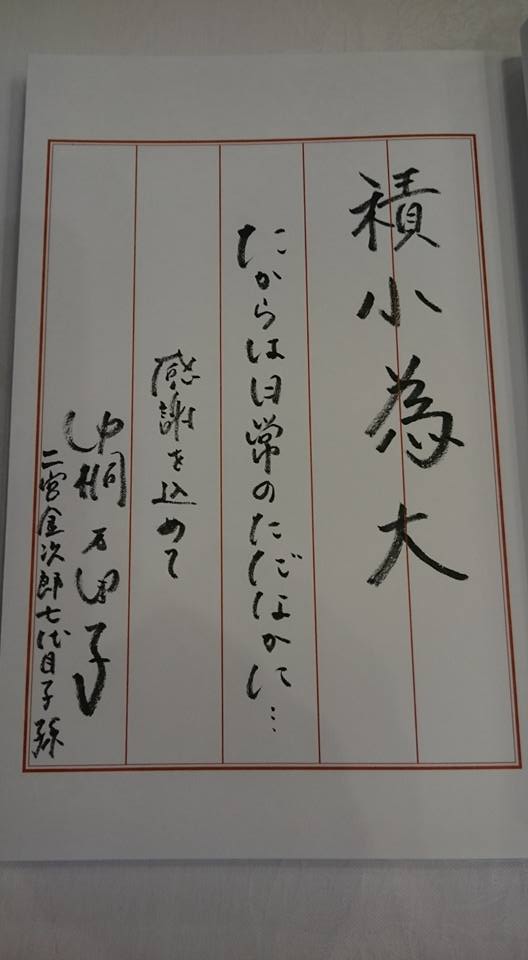 積小為大
たからは日常のただなかに…
感謝を込めて
中桐万里子
二宮金次郎七代目子孫